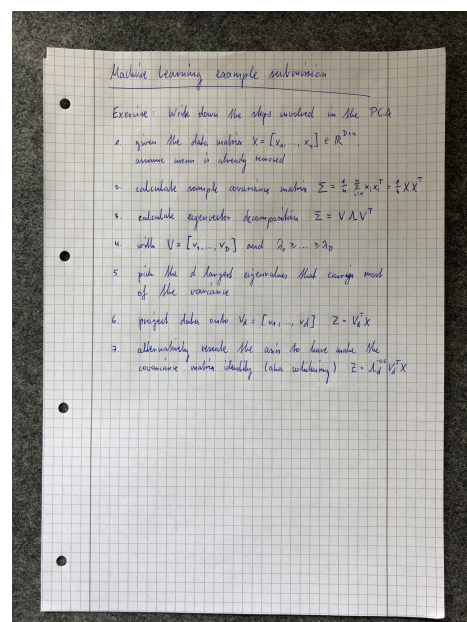 Machine Learning example submission
Exercise: Write down the steps involved in the PCA
1. given the data matrix X = [x₁, , xₙ] ∈ ℝᴰˣⁿ,
assume mean is already removed
2. calculate sample covariance matrix Σ = 1/n Σᵢ₌₁ⁿ xᵢxᵢᵀ = 1/n XXᵀ
3. calculate eigenvector decomposition Σ = VΛVᵀ
4. with V = [v₁, ..., v_D] and λ₁ ≥ ... ≥ λ_D
5 pick the d largest eigenvalues that carry most
of the variance
6. project data onto V_d = [v₁, ..., v_d] Z = V_dᵀX
7. alternatively rescale the axis to have make the
covariance matrix identity (aka whitening) Z = Λ_d^-0.5 V_dᵀX